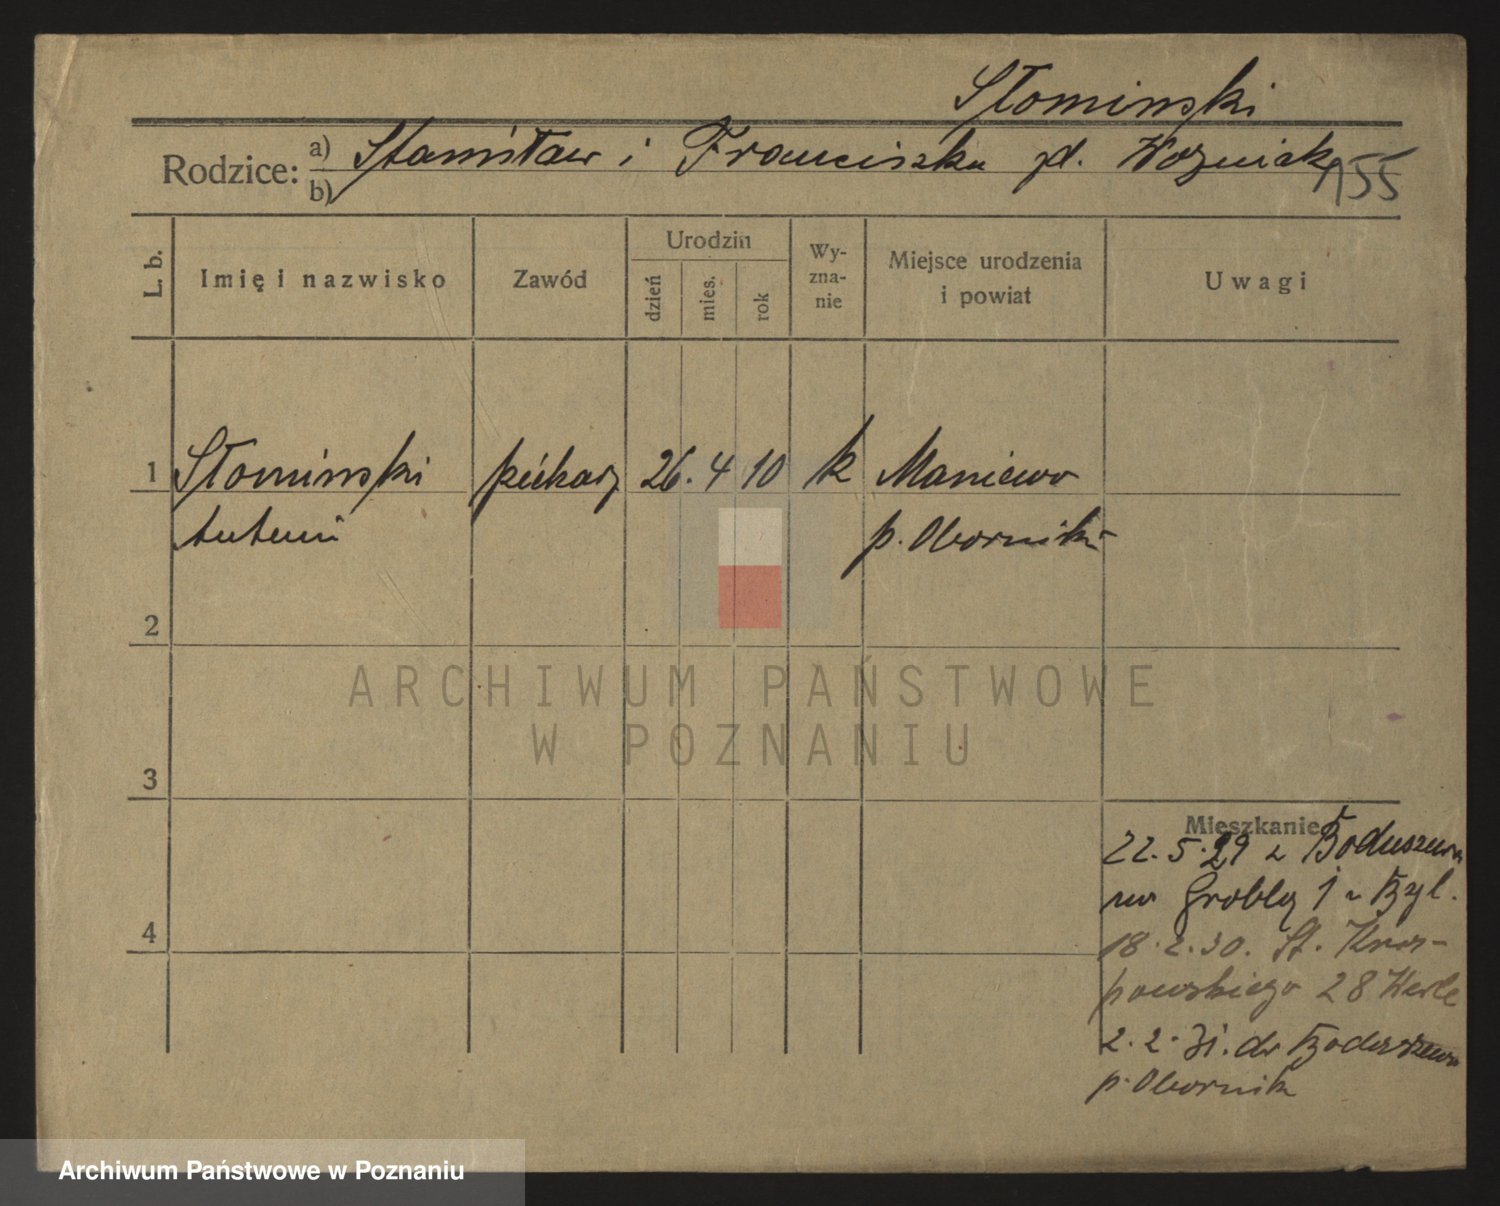 Słominski
Rodzice: a) Stanisław i Franciszka zd. Wozniak
b)
155
L. b.
Imię i nazwisko
Zawód
Urodzin
dzień
mies.
rok
Wy-
zna-
nie
Miejsce urodzenia
i powiat
Uwagi
1 Słominski piekarz 26. 4 10 k Maniewo
Antoni p. Oborniki
2
3
4
Mieszkanie
22. 5. 29 z Boduszewa
na Grobla 1
18. 2. 30. St.
28
2. 2. 31. do Boduszewa
p. Obornik
ARCHIWUM PAŃSTWOWE
W POZNANIU
Archiwum Państwowe w Poznaniu